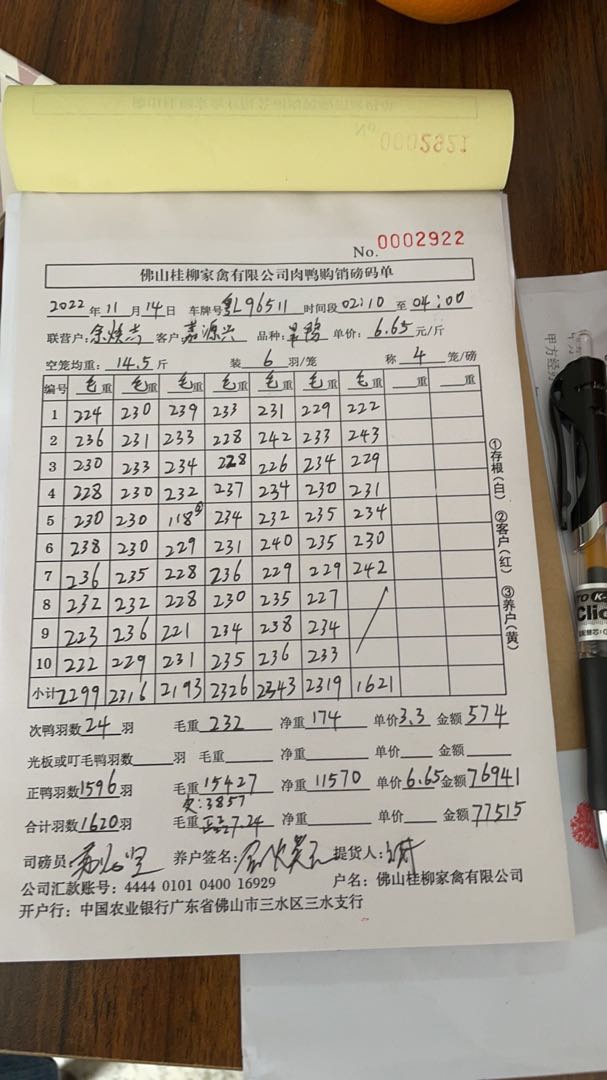 0002921
No. 0002922
佛山桂柳家禽有限公司肉鸭购销磅码单
2022年11月14日 车牌号粤L96511 时间段02:10至04:00
联营户: 客户嘉源兴 品种: 单价:6.65元/斤
空笼均重:14.5斤 装6羽/笼 称4笼/磅
编号 毛重 毛重 毛重 毛重 毛重 毛重 毛重 重 重
1 224 230 239 233 231 229 222
2 236 231 233 228 242 233 243
3 230 233 234 228 226 234 229
4 228 230 232 237 234 230 231
5 230 230 118 234 232 235 234
6 238 230 229 231 240 235 230
7 236 235 228 236 229 229 242
8 232 232 228 230 235 227
9 223 236 221 234 238 234
10 222 229 231 235 236 233
小计 2299 2316 2193 2326 2343 2319 1621
①存根(白) ②客户(红) ③养户(黄)
次鸭羽数24羽 毛重232 净重174 单价3.3 金额574
光板或叮毛鸭羽数 羽 毛重 净重 单价 金额
正鸭羽数1596羽 毛重15427 净重11570 单价6.65 金额76941
:3857
合计羽数1620羽 毛重 7.24 净重 单价 金额77515
司磅员: 养户签名: 提货人:
公司汇款账号:4444 0101 0400 16929 户名:佛山桂柳家禽有限公司
开户行:中国农业银行广东省佛山市三水区三水支行